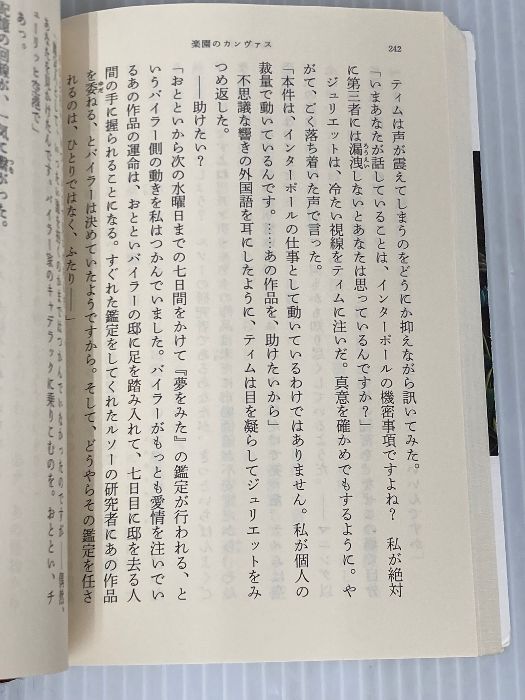 楽園のカンヴァス
242
ティムは声が震えてしまうのをどうにか抑えながら訊いてみた。
「いまあなたが話していることは、インターポールの機密事項ですよね? 私が絶対
に第三者には漏洩しないとあなたは思っているんですか?」
ジュリエットは、冷たい視線をティムに注いだ。真意を確かめでもするように。や
がて、ごく落ち着いた声で言った。
「本件は、インターポールの仕事として動いているわけではありません。私が個人の
裁量で動いているんです。……あの作品を、助けたいから」
不思議な響きの外国語を耳にしたように、ティムは目を凝らしてジュリエットをみ
つめ返した。
――助けたい?
「おとといから次の水曜日までの七日間をかけて『夢をみた』の鑑定が行われる、と
いうバイラー側の動きを私はつかんでいました。バイラーがもっとも愛情を注いでい
るあの作品の運命は、おとといバイラーの邸に足を踏み入れて、七日目に邸を去る人
間の手に握られることになる。すぐれた鑑定をしてくれたルソーの研究者にあの作品
を委ねる、とバイラーは決めていたようですから。そして、どうやらその鑑定を任さ
れるのは、ひとりではなく、ふたり――」